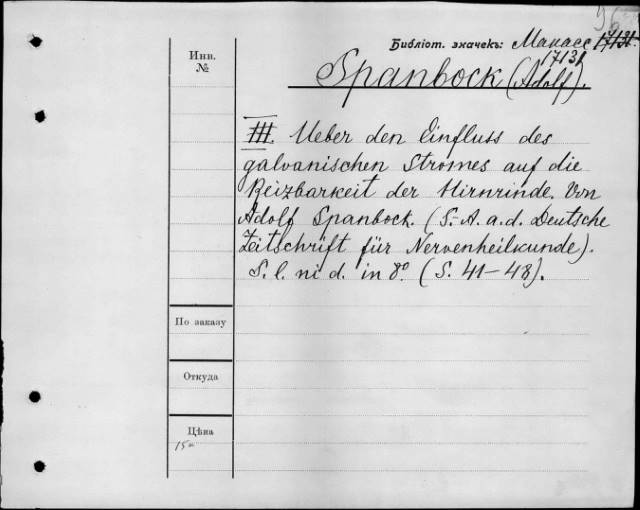 Инв.
№
Библіот. значекъ: Макасс 17131.
17131
Spanbock (Adolf).
III. Ueber den Einfluss des
galvanischen Stromes auf die
Reizbarkeit der Hirnrinde. Von
Adolf Spanbock. (S.-A. a. d. Deutsche
Zeitschrift für Nervenheilkunde).
S. l. ni d. in 8°. (S. 41–48).
По заказу
Откуда
Цѣна
15